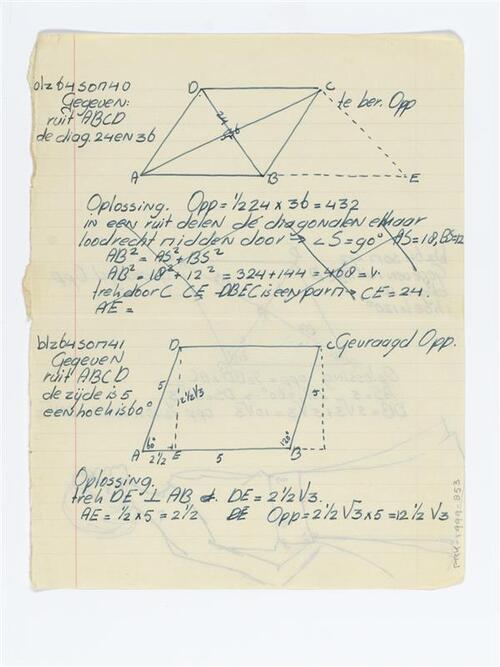 blz 64 som 40
Gegeven:
ruit ABCD
de diag. 24 en 36
D
C
te ber. Opp
24
36
S
A
B
E
Oplossing. Opp = 1/2 24 x 36 = 432
in een ruit delen de diagonalen elkaar
loodrecht midden door → ∠S = 90° AS = 18, BS = 12
AB² = AS² + BS²
AB² = 18² + 12² = 324 + 144 = 468 = v.
trek door C CE DBEC is een par m CE = 24.
AE =
blz 64 som 41
Gegeven
ruit ABCD
de zijde is 5
een hoek is 60°
D
C
Gevraagd Opp.
5
2 1/2 √3
5
60°
120°
A
2 1/2
E
5
B
Oplossing.
trek DE ⊥ AB DE = 2 1/2 √3.
AE = 1/2 x 5 = 2 1/2 Opp = 2 1/2 √3 x 5 = 12 1/2 √3